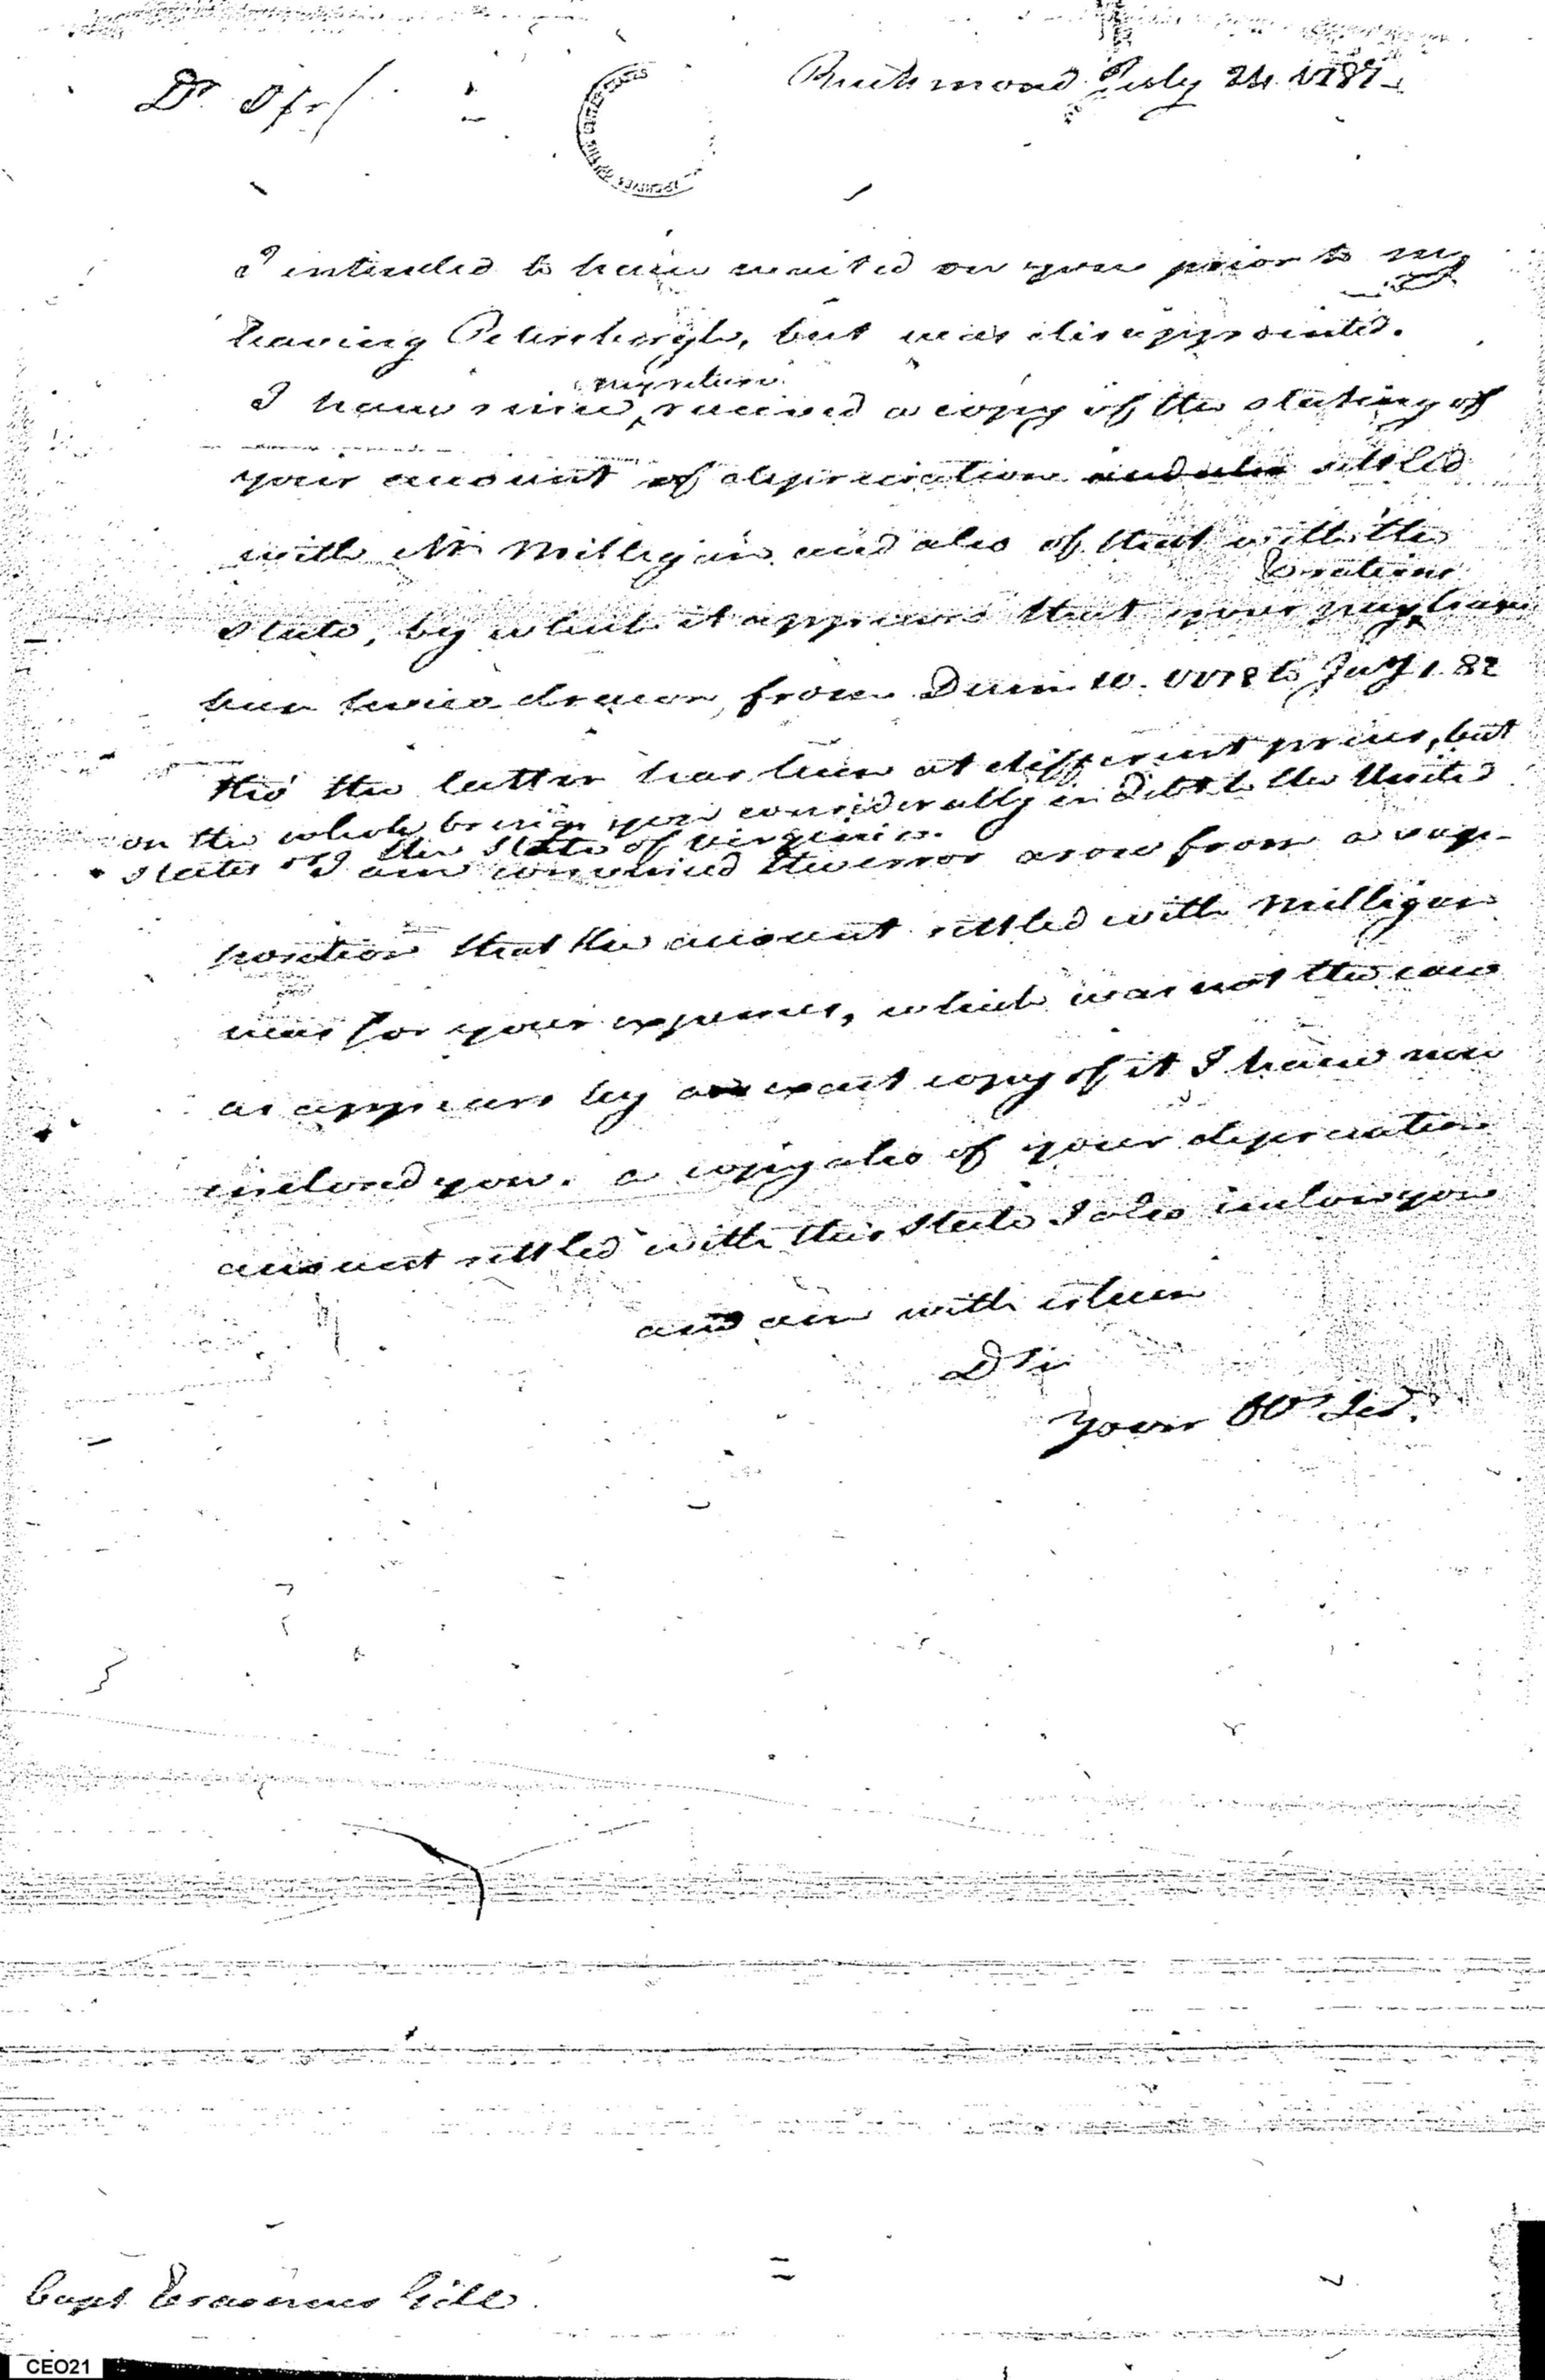 Richmond July 24. 1787
Dr Sir/
I intended to have waited on you prior to my
leaving Petersburgh, but was disappointed.
my return
I have since received a copy of the stating of
your account of depreciation and also settled
with Mr Milligan and also of that with the
& rations
State, by which it appears that your pay have
been twice drawn, from Decem 10. 1778 to Jany 1. 82
tho' the latter has been at different prices, but
on the whole brings you considerably in Debt to the United
States or the State of Virginia.
I am convinced the error arose from a sup-
position that the account settled with Milligan
was for your expences, which was not the case
as appears by an exact copy of it I have now
inclosed you. a copy also of your depreciation
account settled with this State I also inclose you
and am with esteem
D Sir
Your Ob Serv.
Capt Erasmus Gill.
CEO21